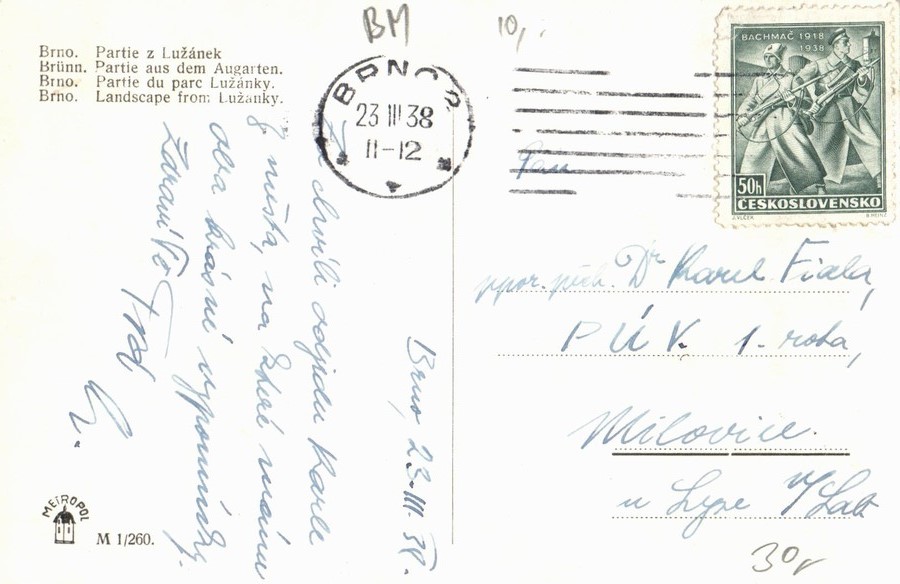 BM
10,-
Brno. Partie z Lužánek
Brünn. Partie aus dem Augarten.
Brno. Partie du parc Lužánky.
Brno. Landscape from Lužanky.
BRNO 2
23 III 38
11-12
BACHMAČ 1918
1938
50h
ČESKOSLOVENSKO
J. VLČEK
B. HEINZ
Brno, 23.III.38.
chvíli odjedu Karle
z místa, na které mám
oba krásné vzpomínky.
Zdraví Tě
Pan
ppor. pěch. Dr Karel Fiala,
P Ú V. 1. rota,
Milovice.
u Lysé n/Lab
30,-
METROPOL
M 1/260.